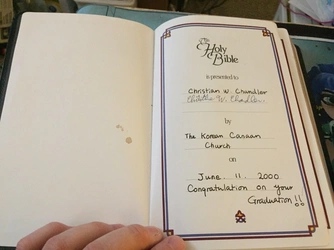 The
Holy
Bible
is presented to
Christian W. Chandler
W. Chandler
by
The Korean Canaan
Church
on
June. 11. 2000
Congratulation on your
Graduation!!